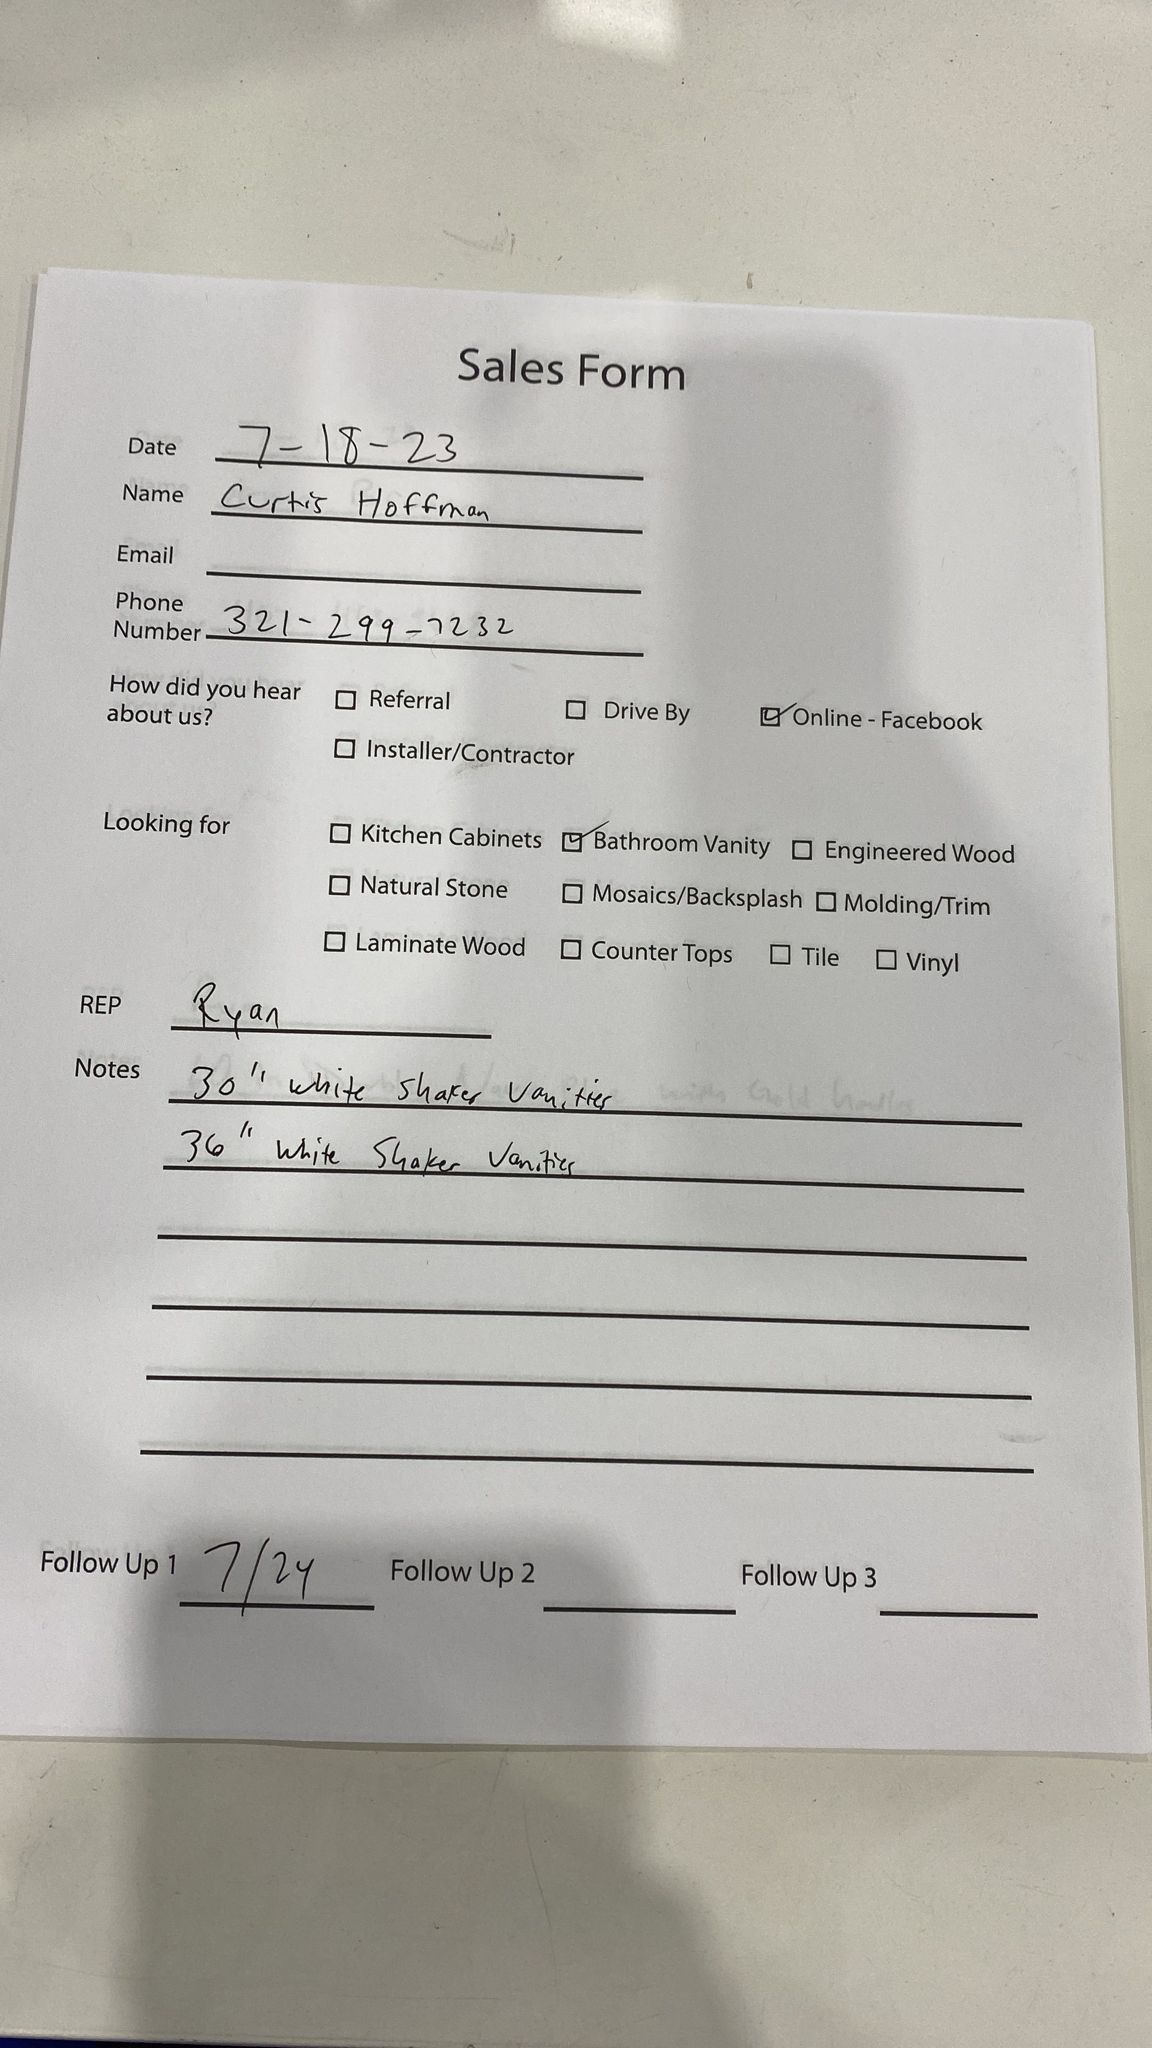 Sales Form
Date 7-18-23
Name Curtis Hoffman
Email
Phone
Number 321-299-7232
How did you hear about us? ☐ Referral ☐ Drive By ☑ Online - Facebook
☐ Installer/Contractor
Looking for ☐ Kitchen Cabinets ☑ Bathroom Vanity ☐ Engineered Wood
☐ Natural Stone ☐ Mosaics/Backsplash ☐ Molding/Trim
☐ Laminate Wood ☐ Counter Tops ☐ Tile ☐ Vinyl
REP Ryan
Notes 30" white Shaker Vanities
36" White Shaker Vanities
Follow Up 1 7/24 Follow Up 2 Follow Up 3